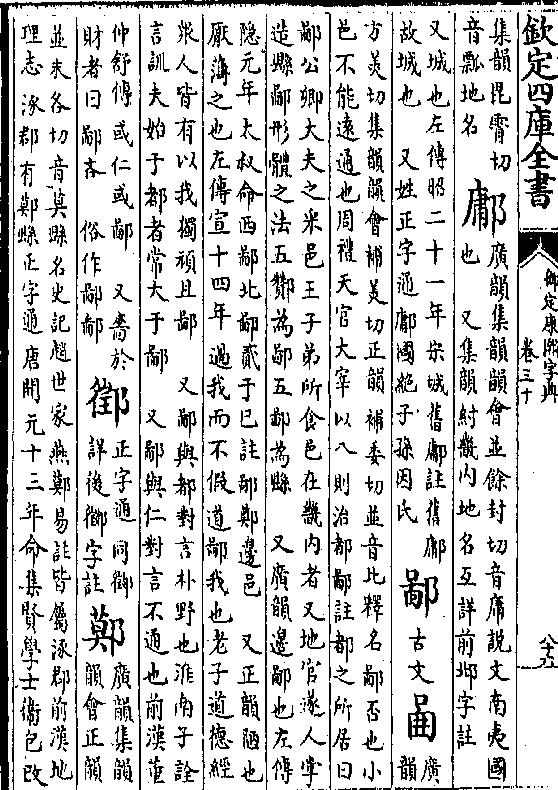 欽定四庫全書
御定康熙字典
卷三十
八十五
集韻毘霄切
音瓢地名
鄘
廣韻集韻韻會並餘封切音庸說文南夷國
也 又集韻紂畿內地名互詳前邶字註
又城也左傳昭二十一年宋城舊鄘註舊鄘
故城也 又姓正字通鄘國絕子孫因氏
鄙 古文啚
廣
韻
方美切集韻韻會補美切正韻補委切並音比釋名鄙否也小
邑不能遠通也周禮天官大宰以八則治都鄙註都之所居曰
鄙公卿大夫之采邑王子弟所食邑在畿內者又地官遂人掌
造縣鄙形體之法五酇為鄙五鄙為縣 又廣韻邊鄙也左傳
隱元年太叔命西鄙北鄙貳于已註鄙鄭邊邑 又正韻陋也
厭薄之也左傳宣十四年過我而不假道鄙我也老子道德經
衆人皆有以我獨頑且鄙 又鄙與都對言朴野也淮南子詮
言訓夫始于都者常大于鄙 又鄙與仁對言不通也前漢董
仲舒傳或仁或鄙 又嗇於
財者曰鄙吝 俗作
正字通同
詳後字註
鄚
廣韻集韻
韻會正韻
並末各切音莫縣名史記趙世家燕鄚易註皆屬涿郡前漢地
理志涿郡有鄚縣正字通唐開元十三年命集賢學士衛包改